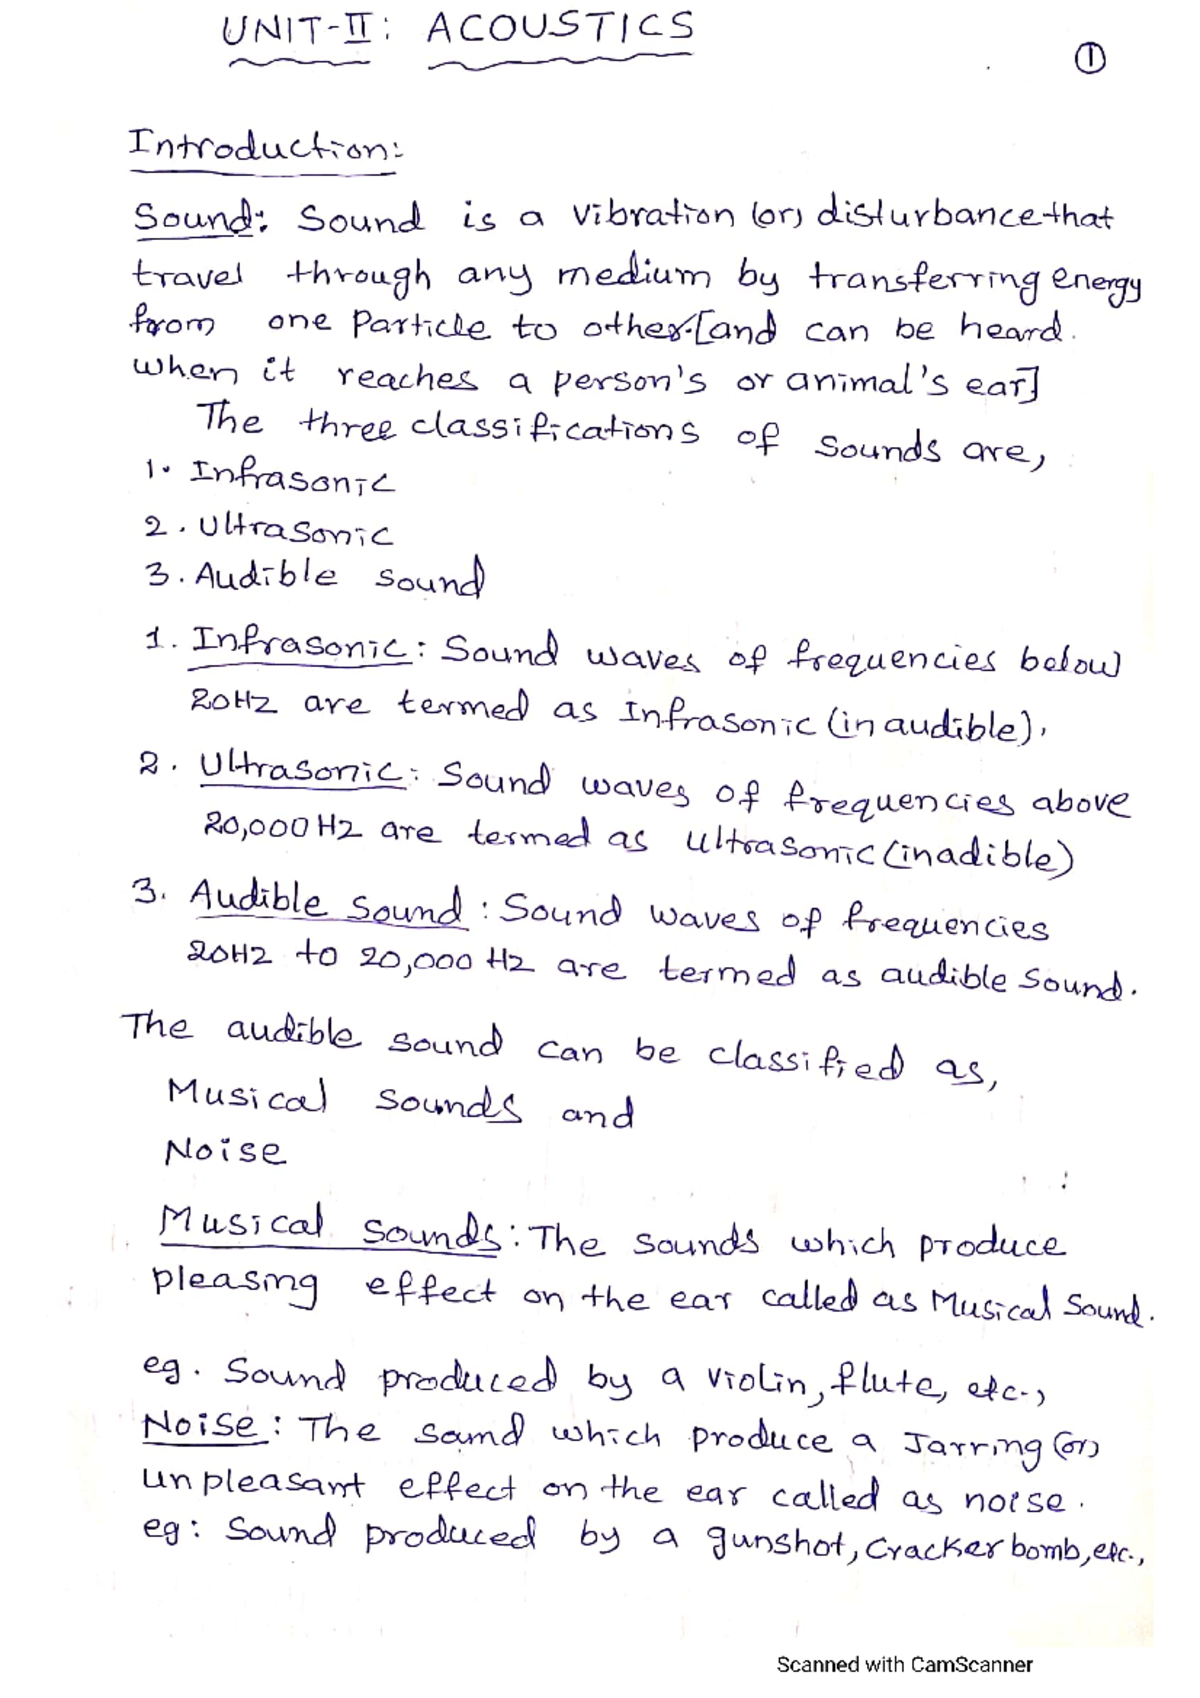 UNIT-II: ACOUSTICS
1
Introduction:
Sound: Sound is a vibration (or) disturbance that
travel through any medium by transferring energy
from one Particle to other.[and can be heard.
when it reaches a person's or animal's ear]
The three classifications of sounds are,
1. Infrasonic
2. Ultrasonic
3. Audible sound
1. Infrasonic: Sound waves of frequencies below
20Hz are termed as Infrasonic (in audible).
2. Ultrasonic: Sound waves of frequencies above
20,000 Hz are termed as ultrasonic (inadible)
3. Audible sound: Sound waves of frequencies
20Hz to 20,000 Hz are termed as audible sound.
The audible sound can be classified as,
Musical sounds and
Noise
Musical sounds: The sounds which produce
pleasing effect on the ear called as Musical Sound.
eg. Sound produced by a violin, flute, etc.,
Noise: The sound which produce a Jarring (or)
unpleasant effect on the ear called as noise.
eg: Sound produced by a gunshot, Cracker bomb, etc.,
Scanned with CamScanner